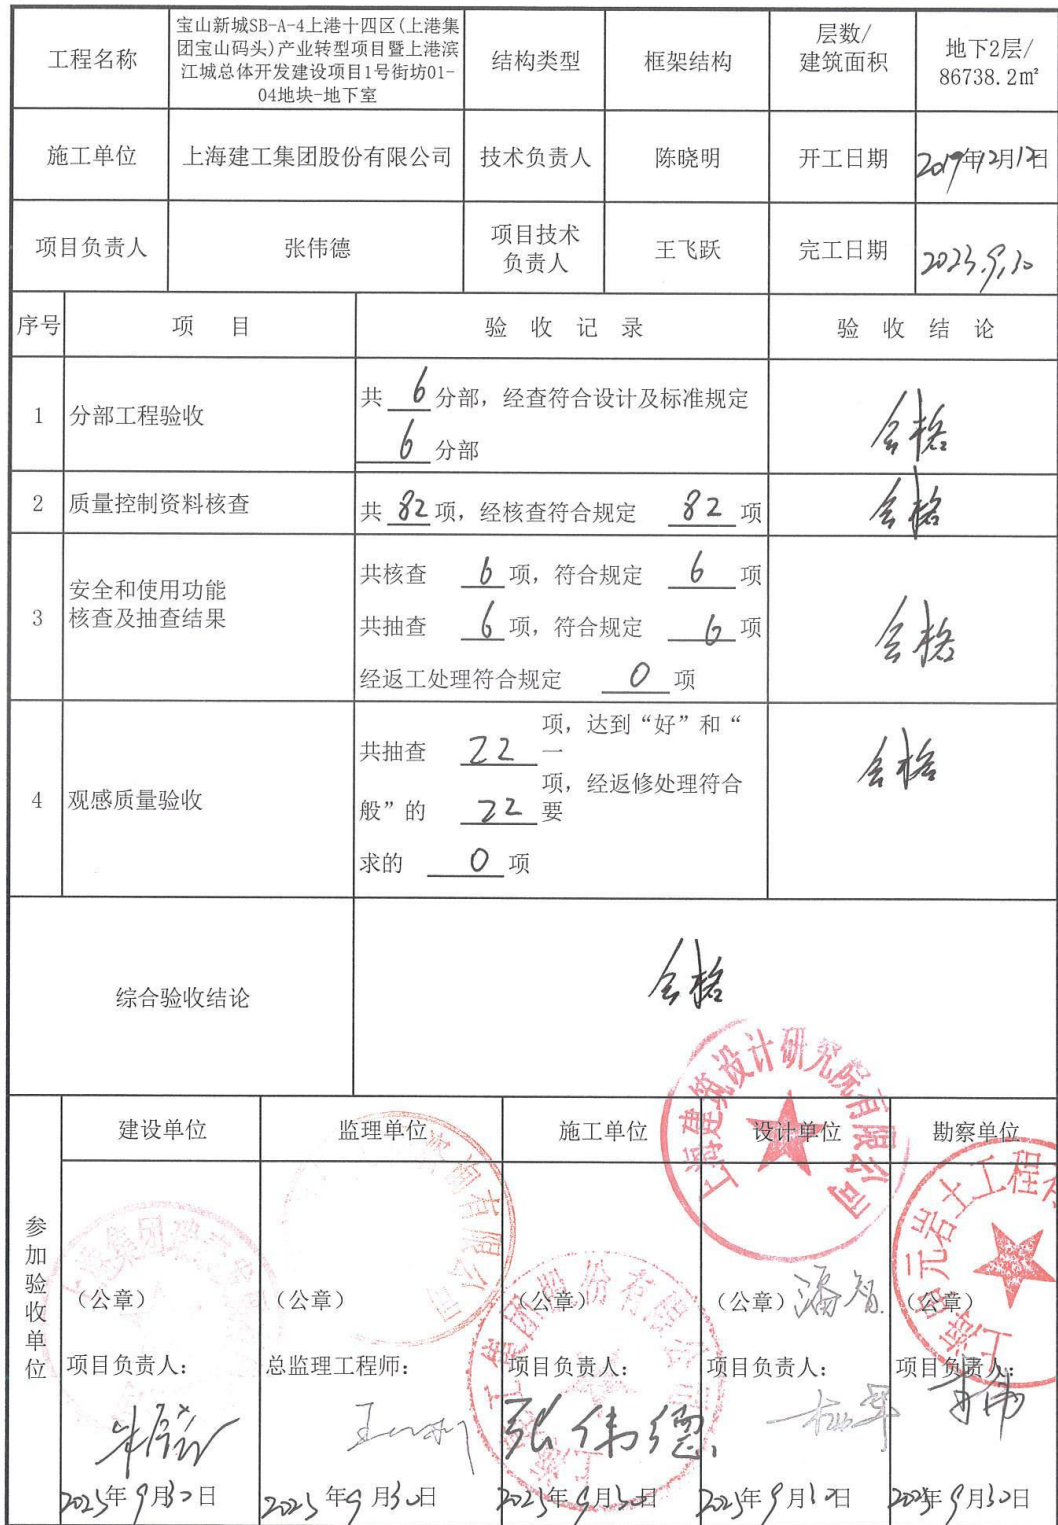 工程名称
宝山新城SB-A-4上港十四区(上港集
团宝山码头)产业转型项目暨上港滨
江城总体开发建设项目1号街坊01-
04地块-地下室
结构类型
框架结构
层数/
建筑面积
地下2层/
86738.2m²
施工单位
上海建工集团股份有限公司
技术负责人
陈晓明
开工日期
2019年12月12日
项目负责人
张伟德
项目技术
负责人
王飞跃
完工日期
2023.9.30
序号
项 目
验 收 记 录
验 收 结 论
1
分部工程验收
共 6 分部，经查符合设计及标准规定
6 分部
合格
2
质量控制资料核查
共 82 项，经核查符合规定 82 项
合格
3
安全和使用功能
核查及抽查结果
共核查 6 项，符合规定 6 项
共抽查 6 项，符合规定 6 项
经返工处理符合规定 0 项
合格
4
观感质量验收
共抽查 22 项，达到“好”和“一
般”的 22 项，经返修处理符合要
求的 0 项
合格
综合验收结论
合格
参加验收单位
建设单位
监理单位
施工单位
设计单位
勘察单位
上海建筑设计研究院有限公司
（公章）
（公章）
（公章）
（公章）
潘智
（公章）
项目负责人：
总监理工程师：
项目负责人：
项目负责人：
项目负责人：
张伟德
年9月30日
年9月30日
年9月30日
年9月30日
年9月30日